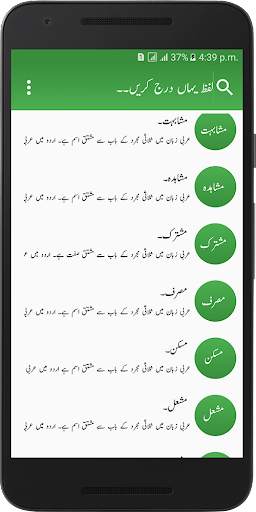 37% 4:39 p.m.
لفظ یہاں درج کریں۔۔
مشابہت
مشابہت۔
عربی زبان میں ثلاثی مجرد کے باب سے مشتق اسم ہے۔ اردو میں عربی
مشاہدہ
مشاہدہ۔
عربی زبان میں ثلاثی مجرد کے باب سے مشتق اسم ہے۔ اردو میں عربی
مشترک
مشترک۔
عربی زبان میں ثلاثی مجرد کے باب سے مشتق صفت ہے۔ اردو میں عر
مصرف
مصرف۔
عربی زبان میں ثلاثی مجرد کے باب سے مشتق اسم ہے۔ اردو میں عربی
مسکن
مسکن۔
عربی زبان میں ثلاثی مجرد کے باب سے مشتق اسم ہے اردو میں عربی
مشعل
مشعل۔
عربی زبان میں ثلاثی مجرد کے باب سے مشتق اسم ہے۔ اردو میں عربی